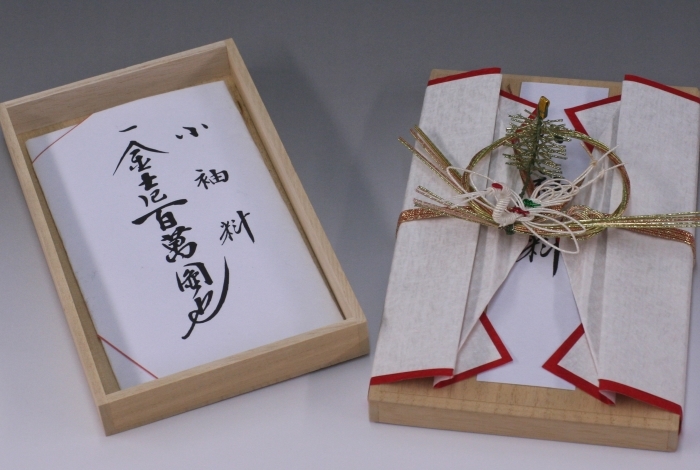 小袖料
一金壱百萬圓也
料